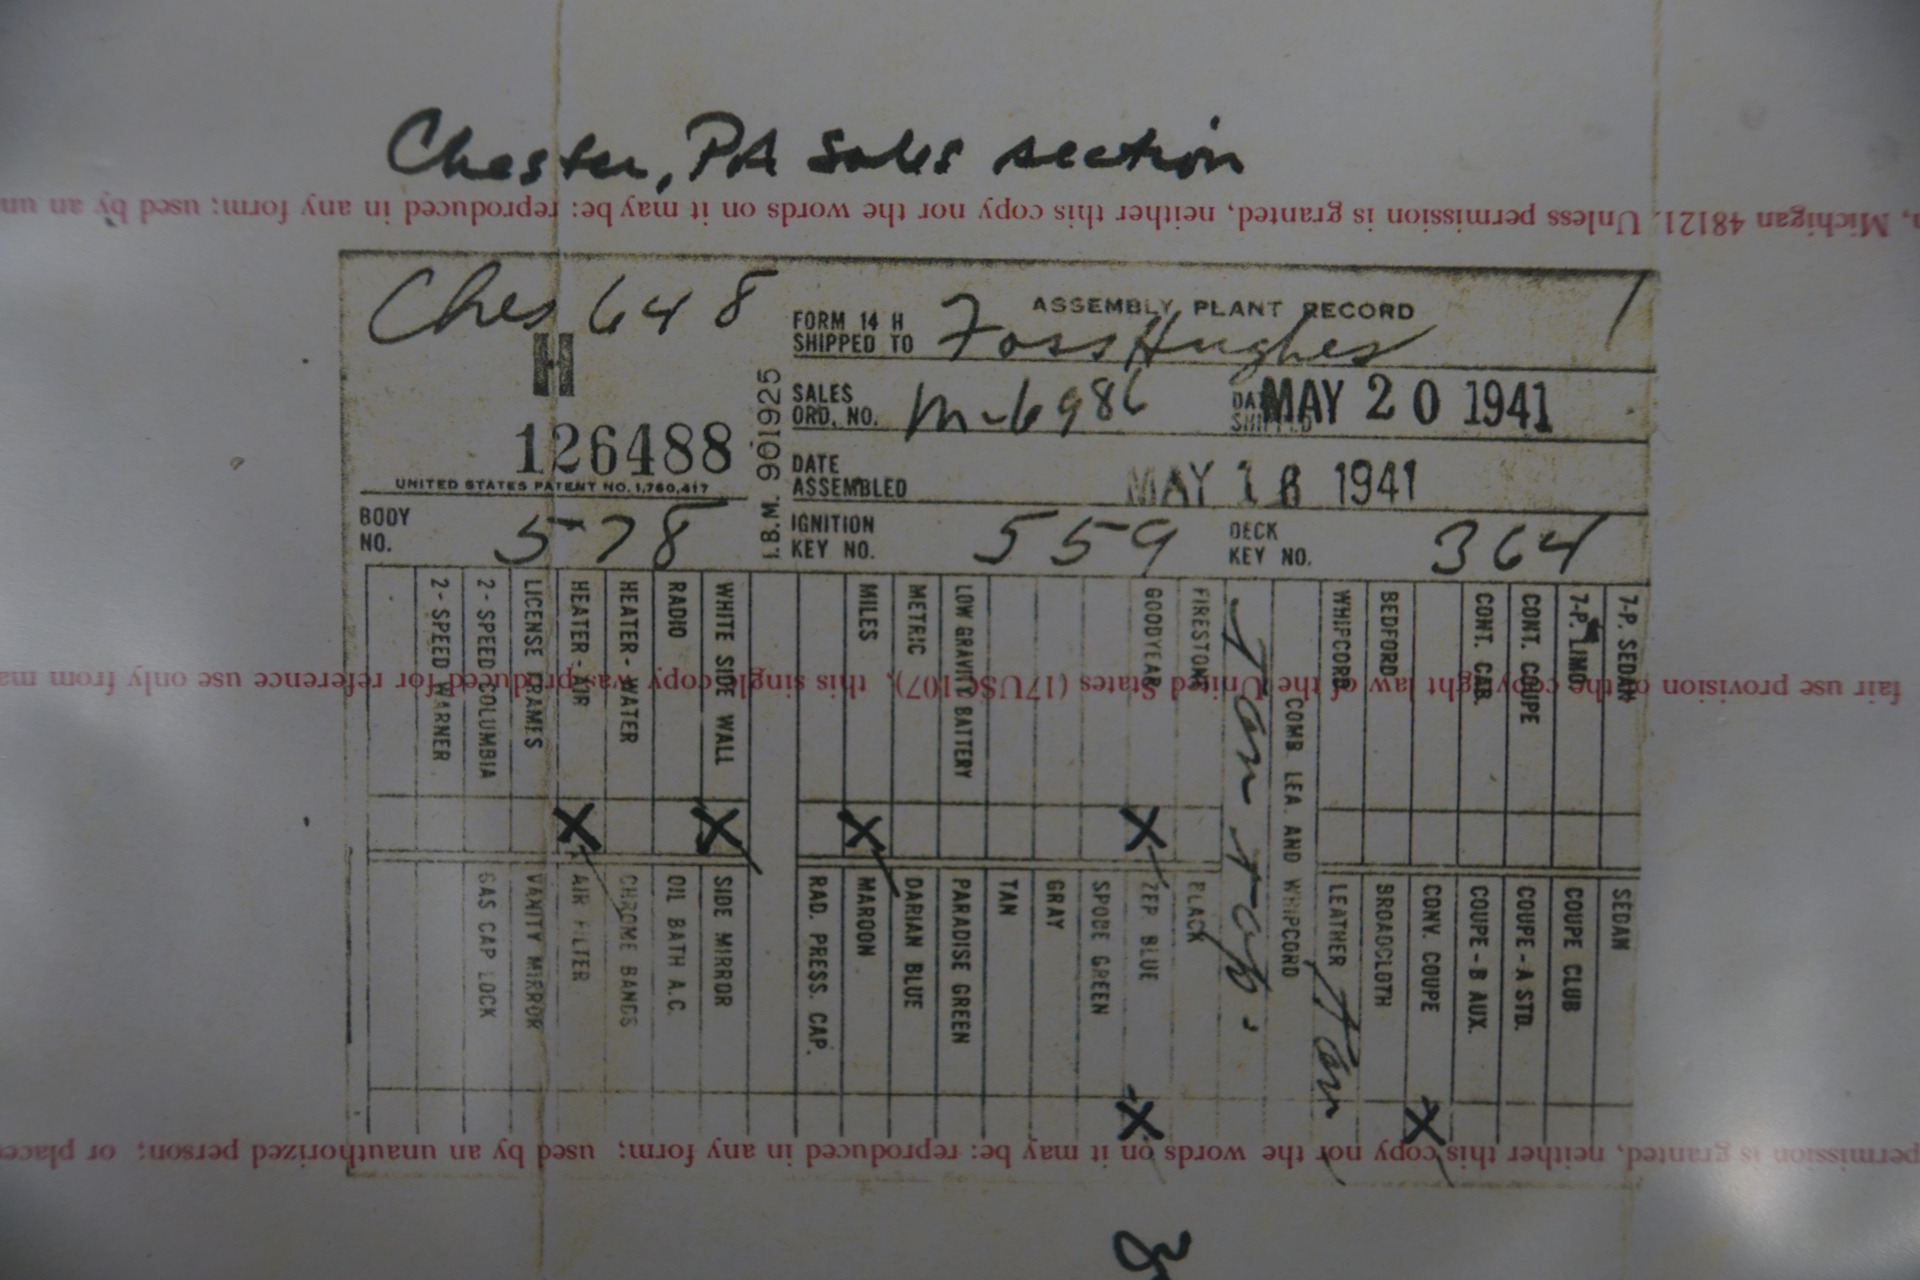 Chester, PA Sales section
n, Michigan 48121. Unless permission is granted, neither this copy nor the words on it may be: reproduced in any form; used by an un
Ches 648
H
126488
UNITED STATES PATENT NO. 1,760,417
I.B.M. 901925
ASSEMBLY PLANT RECORD
FORM 14 H
SHIPPED TO Foss Hughes
SALES
ORD. NO. M-6986
MAY 20 1941
DATE
ASSEMBLED MAY 16 1941
BODY
NO. 578
IGNITION
KEY NO. 559
DECK
KEY NO. 364
2 - SPEED WARNER
2 - SPEED COLUMBIA
LICENSE FRAMES
HEATER - AIR X
HEATER - WATER
RADIO
WHITE SIDE WALL X
MILES X
METRIC
LOW GRAVITY BATTERY
GOODYEAR X
FIRESTONE
Tan top.
COMB. LEA. AND WHIPCORD
WHIPCORD
BEDFORD
CONT. CAB.
CONT. COUPE
7-P. LIMO
7-P. SEDAN
fair use provision of the copyright law of the United States (17USC107), this single copy was produced for reference use only from ma
GAS CAP LOCK
VANITY MIRROR
AIR FILTER
CHROME BANDS
OIL BATH A.C.
SIDE MIRROR
RAD. PRESS. CAP.
MAROON
DARIAN BLUE
PARADISE GREEN
TAN
GRAY
SPODE GREEN
ZEP. BLUE X
BLACK
LEATHER Tan
BROADCLOTH
CONV. COUPE X
COUPE - B AUX.
COUPE - A STD.
COUPE CLUB
SEDAN
permission is granted, neither this copy nor the words on it may be: reproduced in any form; used by an unauthorized person; or place